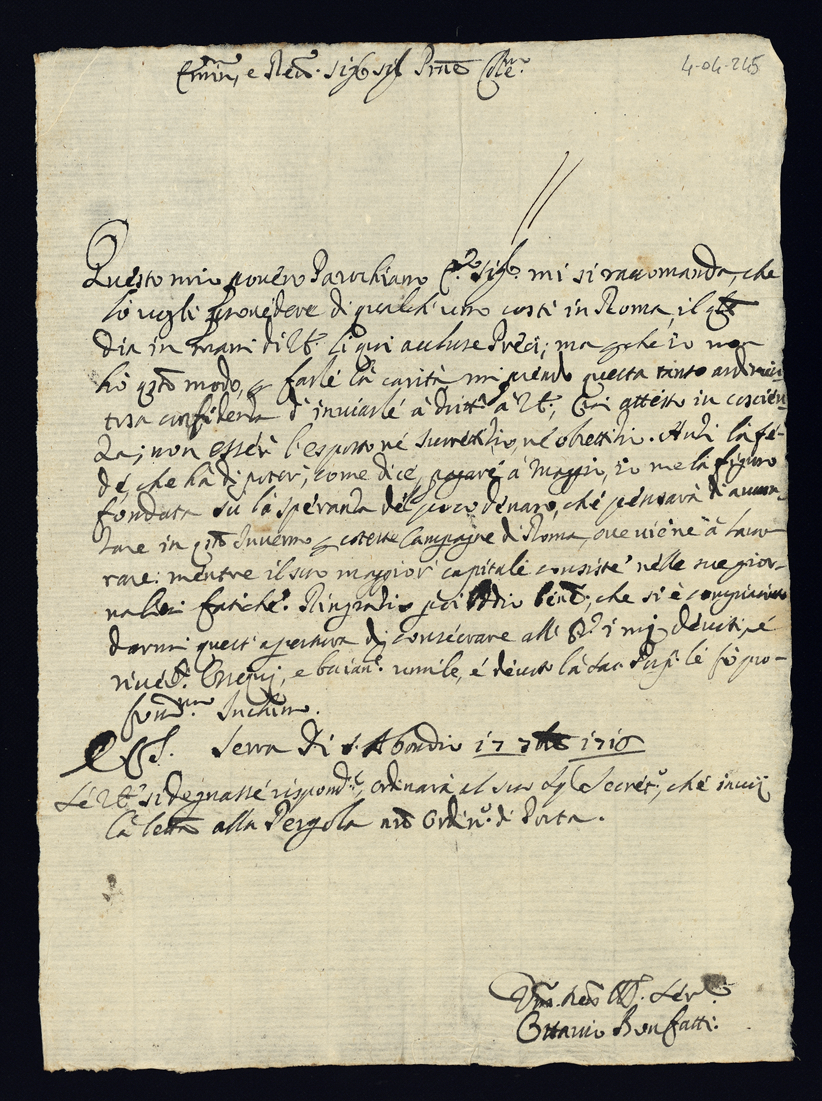 4-04-245
Emin, e Reū. Sigr Sigr Prne Col.
Questo mio povero Parochiano Sigr. mi si raccomanda, che
lo vogli provedere di qualcheuno costì in Roma, il qle
dia in mani di le qui accluse Preci; ma che io non
hò qsto modo, p farle la carità mi prendo questa tanto ardimen
tosa confidenza d'inviarle à dritta à attesto in coscien
za, non esser l'esposto né surrettitio, né obrettitio. Anzi la fe-
de, che hà di poter, come dice, pagare à Maggio, io me la figuro
fondata su la speranza del poco denaro, che pensarà d'avan
zare in qsto Inverno p coteste Campagne di Roma, ove viene à lavo
rare: mentre il suo maggior capitale consiste nelle sue gior-
naliere fatiche. Ringratio poi Iddio bened, che si è compiaciuto
darmi quest'apertura di consecrare all' i miei devoti, e
river. Ossequj, e baciane. umile, e devoto la Sac. Porp. le fò pro-
fondmo Inchino.
Serra di S. Abondio 17 7bre 1710
Se si degnasse rispond, ordinarà al suo Sigr Secreto, che invij
la lettra alla Pergola Ordinro. di Posta.
Serv.
Ottavio Bonfatti